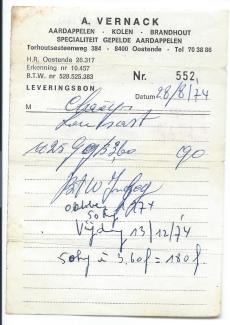 A. VERNACK
AARDAPPELEN - KOLEN - BRANDHOUT
SPECIALITEIT GEPELDE AARDAPPELEN
Torhoutsesteenweg 384 - 8400 Oostende - Tel 70 38 86
H.R. Oostende 26.317
Erkenning nr 10.457
B.T.W. nr 528.525.383
Nr. 552
LEVERINGSBON
Datum 28/8/74
M
90
BTW
50kg 274
Vrijdag 13/12/74
50kg à 3,60f = 180f